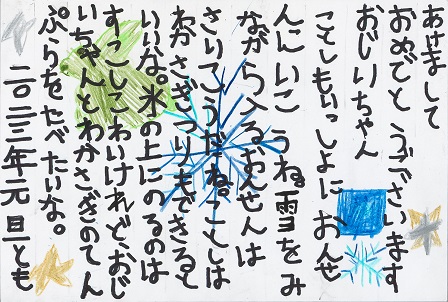 あけまして
おめでとうございます
おじいちゃん
ことしもいっしょにおんせ
んにいこうね。雪をみ
ながら入るおんせんは
さいこうだね。ことしは
わかさぎつりもできると
いいな。氷の上にのるのは
すこしこわいけれど、おじ
いちゃんとわかさぎのてん
ぷらをたべたいな。
二〇二三年元旦とも